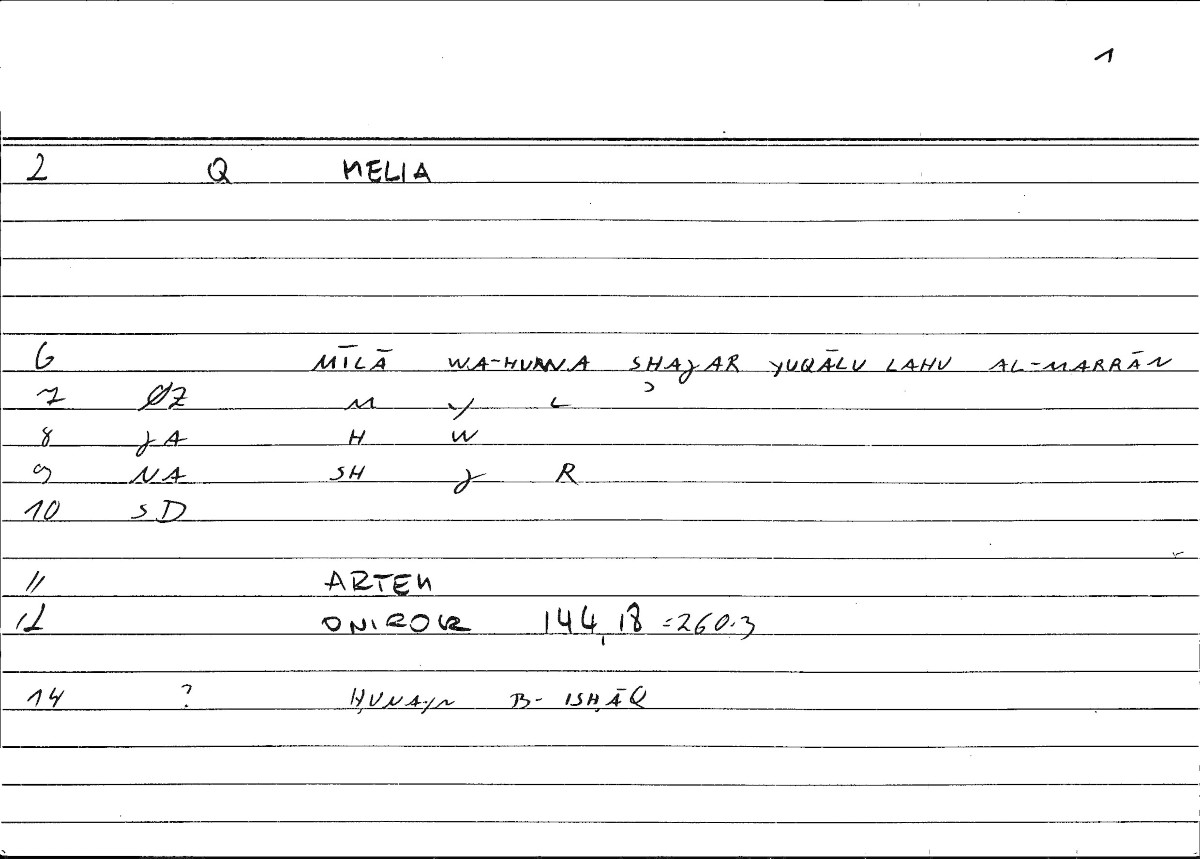 1
2 Q MELIA
6 MĪLĀ WA-HUWA SHAJAR YUQĀLU LAHU AL-MARRĀN
7 ØZ M Y L
8 JA H W
9 NA SH J R
10 SD
11 ARTEM
12 ONIROK 144,18 =260.3
14 ? ḤUNAYN B- ISḤĀQ